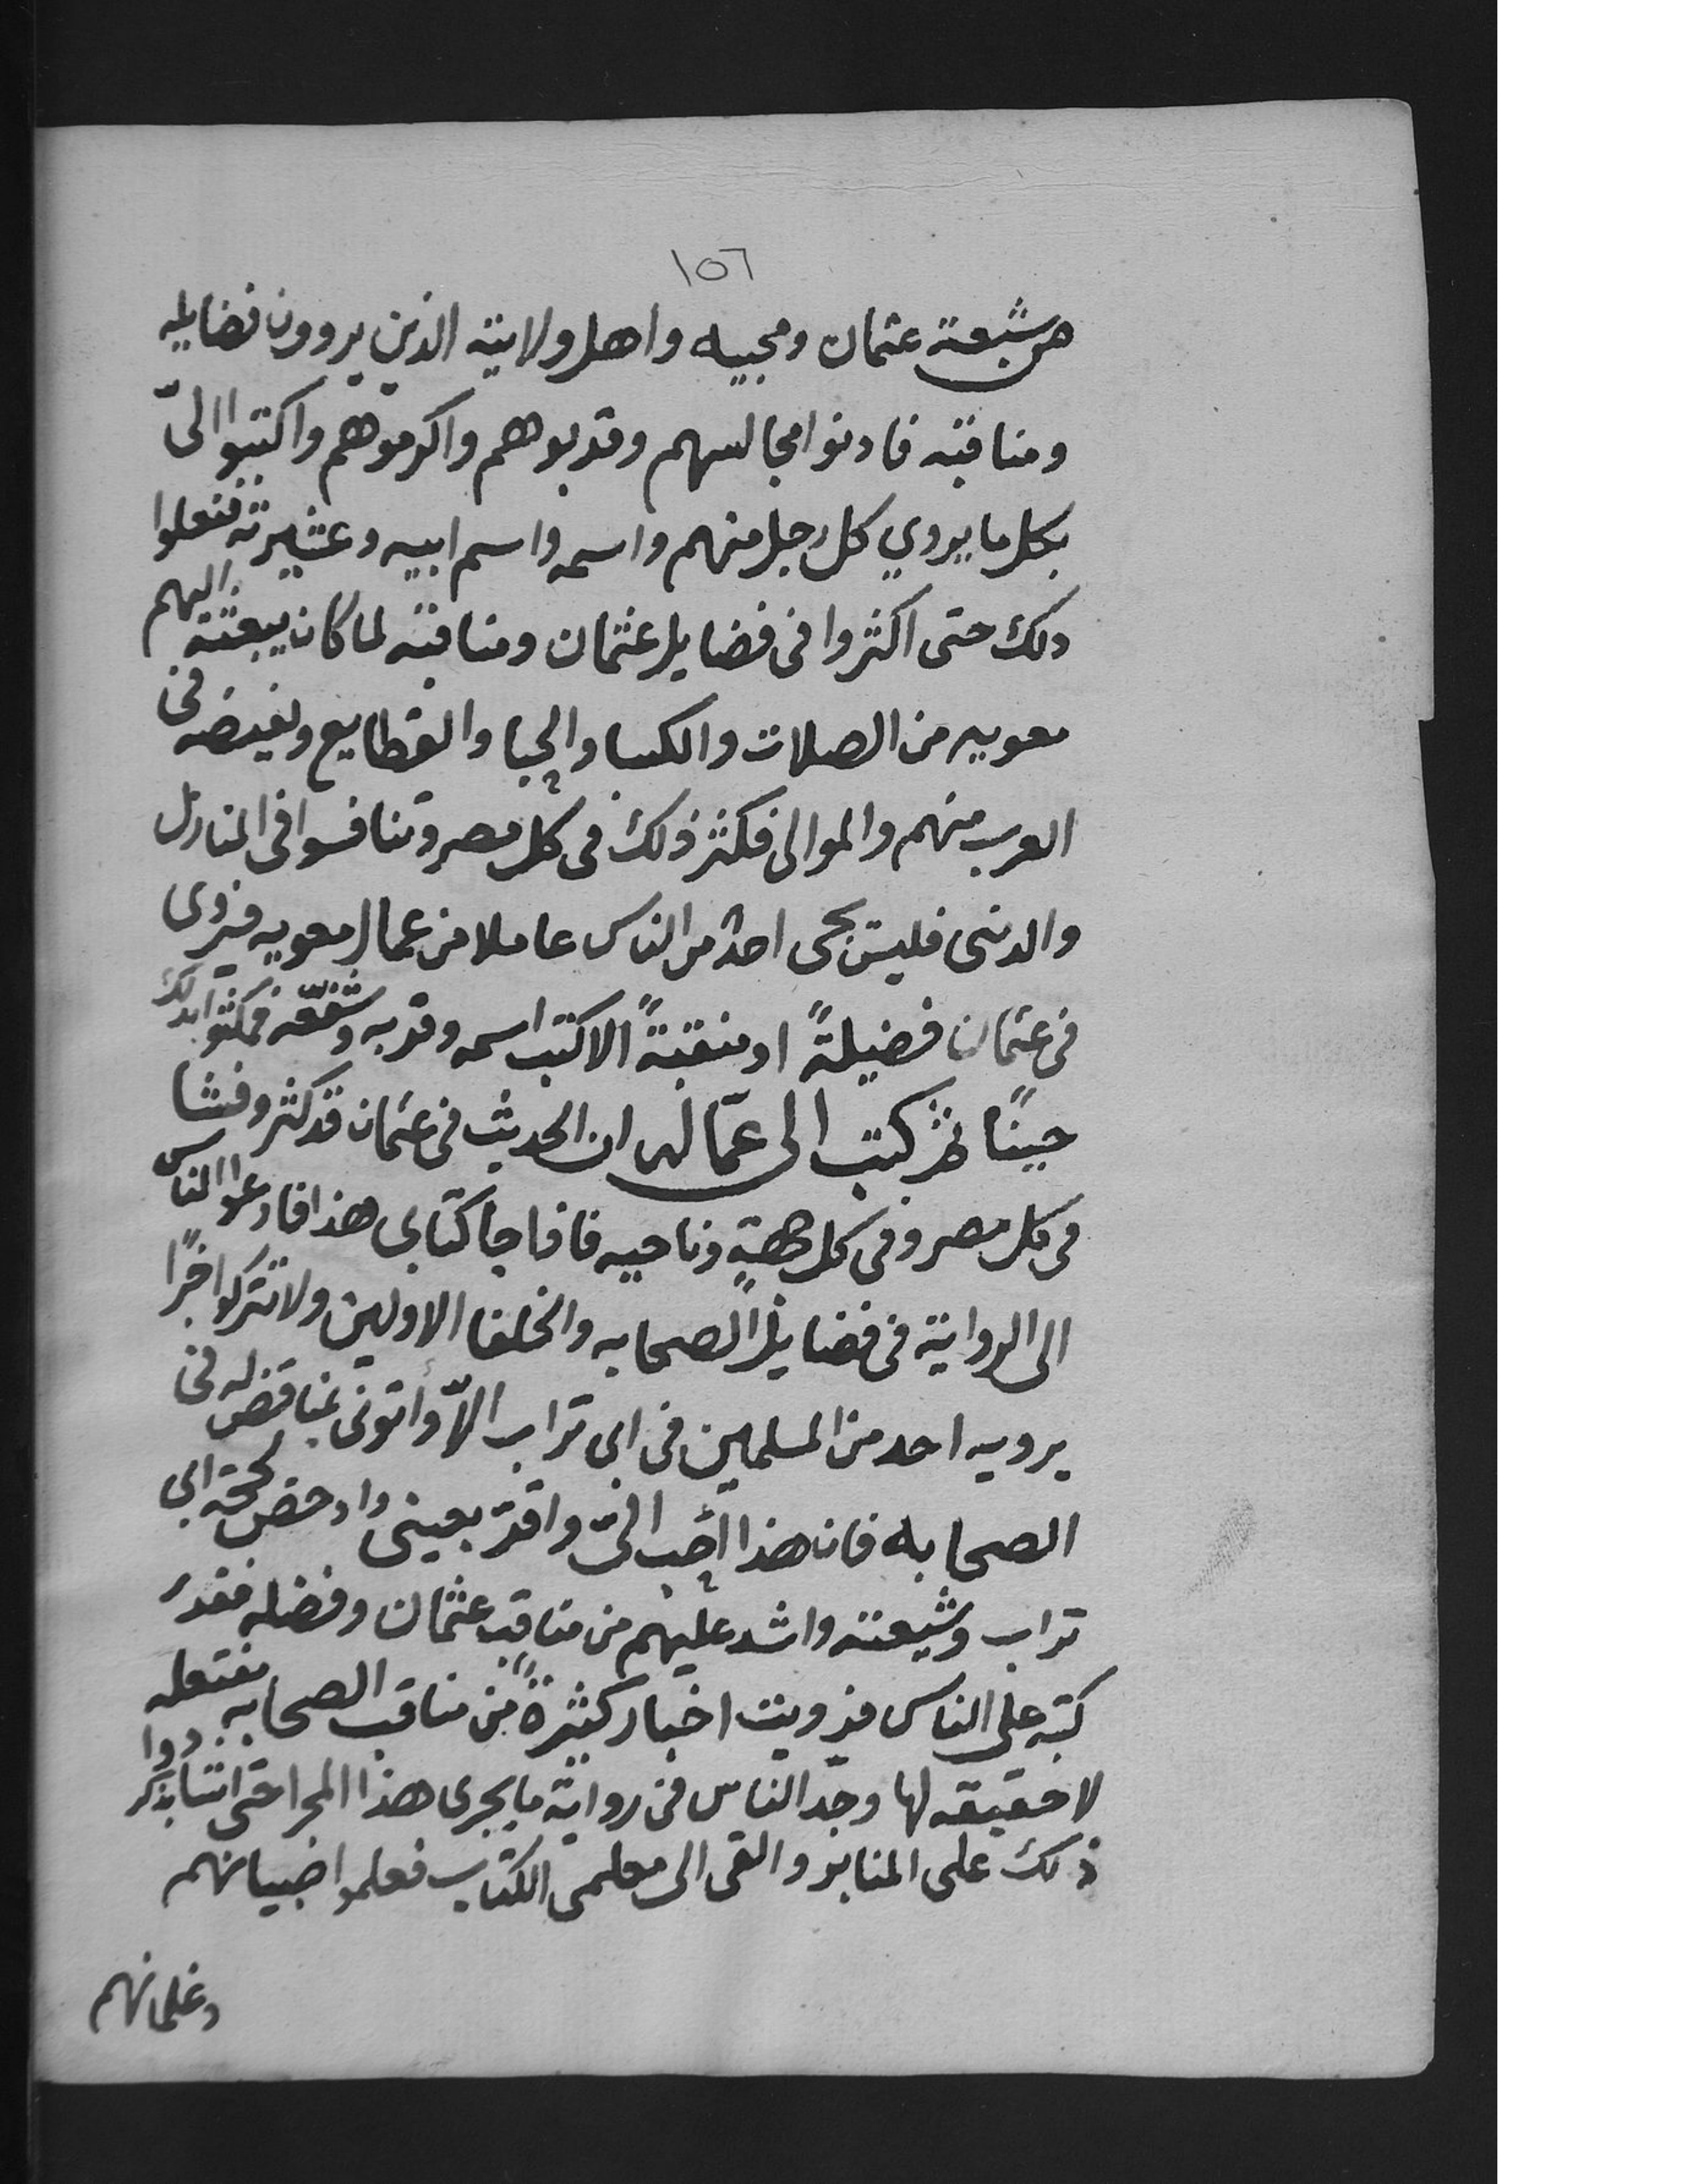 ١٥٦
من شيعة عثمان ومحبيه واهل ولايته الذين يروون فضايله
ومناقبه فادنوا مجالسهم وقربوهم واكرموهم واكتبوا الىّ
بكل ما يروي كل رجل منهم واسمه واسم ابيه وعشيرته ففعلوا
دلك حتى اكثروا فى فضايل عثمان ومناقبه لما كان يبعثه اليهم
معويه من الصلات والكسا والحبا والقطايع ويفيضه فى
العرب منهم والموالى فكثر ذلك فى كل مصر وتنافسوا فى المنازل
والدنيى فليس يجى احد من الناس عاملا من عمال معويه فيروى
فى عثمان فضيلةً او منقبةً الا كتب اسمه وقربه وشفّعه فمكثوا بدلك
حينًا ثم كتب الى عمّاله ان الحديث فى عثمان قد كثر وفشا
فى كل مصر وفى كل جهةٍ وناحيه فاذا جا كتابى هذا فادعوا الناس
الى الرواية فى فضايل الصحابه والخلفا الاولين ولا تتركوا خبرًا
يرويه احد من المسلمين فى ابى تراب الاّ وأتونى بمناقض له فى
الصحابه فان هذا احب الىّ واقرّ بعينى وادحض لحجة ابى
تراب وشيعته واشد عليهم من مناقب عثمان وفضله فقرئ
كتبه على الناس فرويت اخبار كثيرةً من مناقب الصحابه مفتعله
لا حقيقه لها وجدّ الناس فى رواية ما يجرى هذا المجرا حتى اشادوا بذكر
ذلك على المنابر والقى الى معلمى الكتاب فعلموا صبيانهم
وغلمانهم